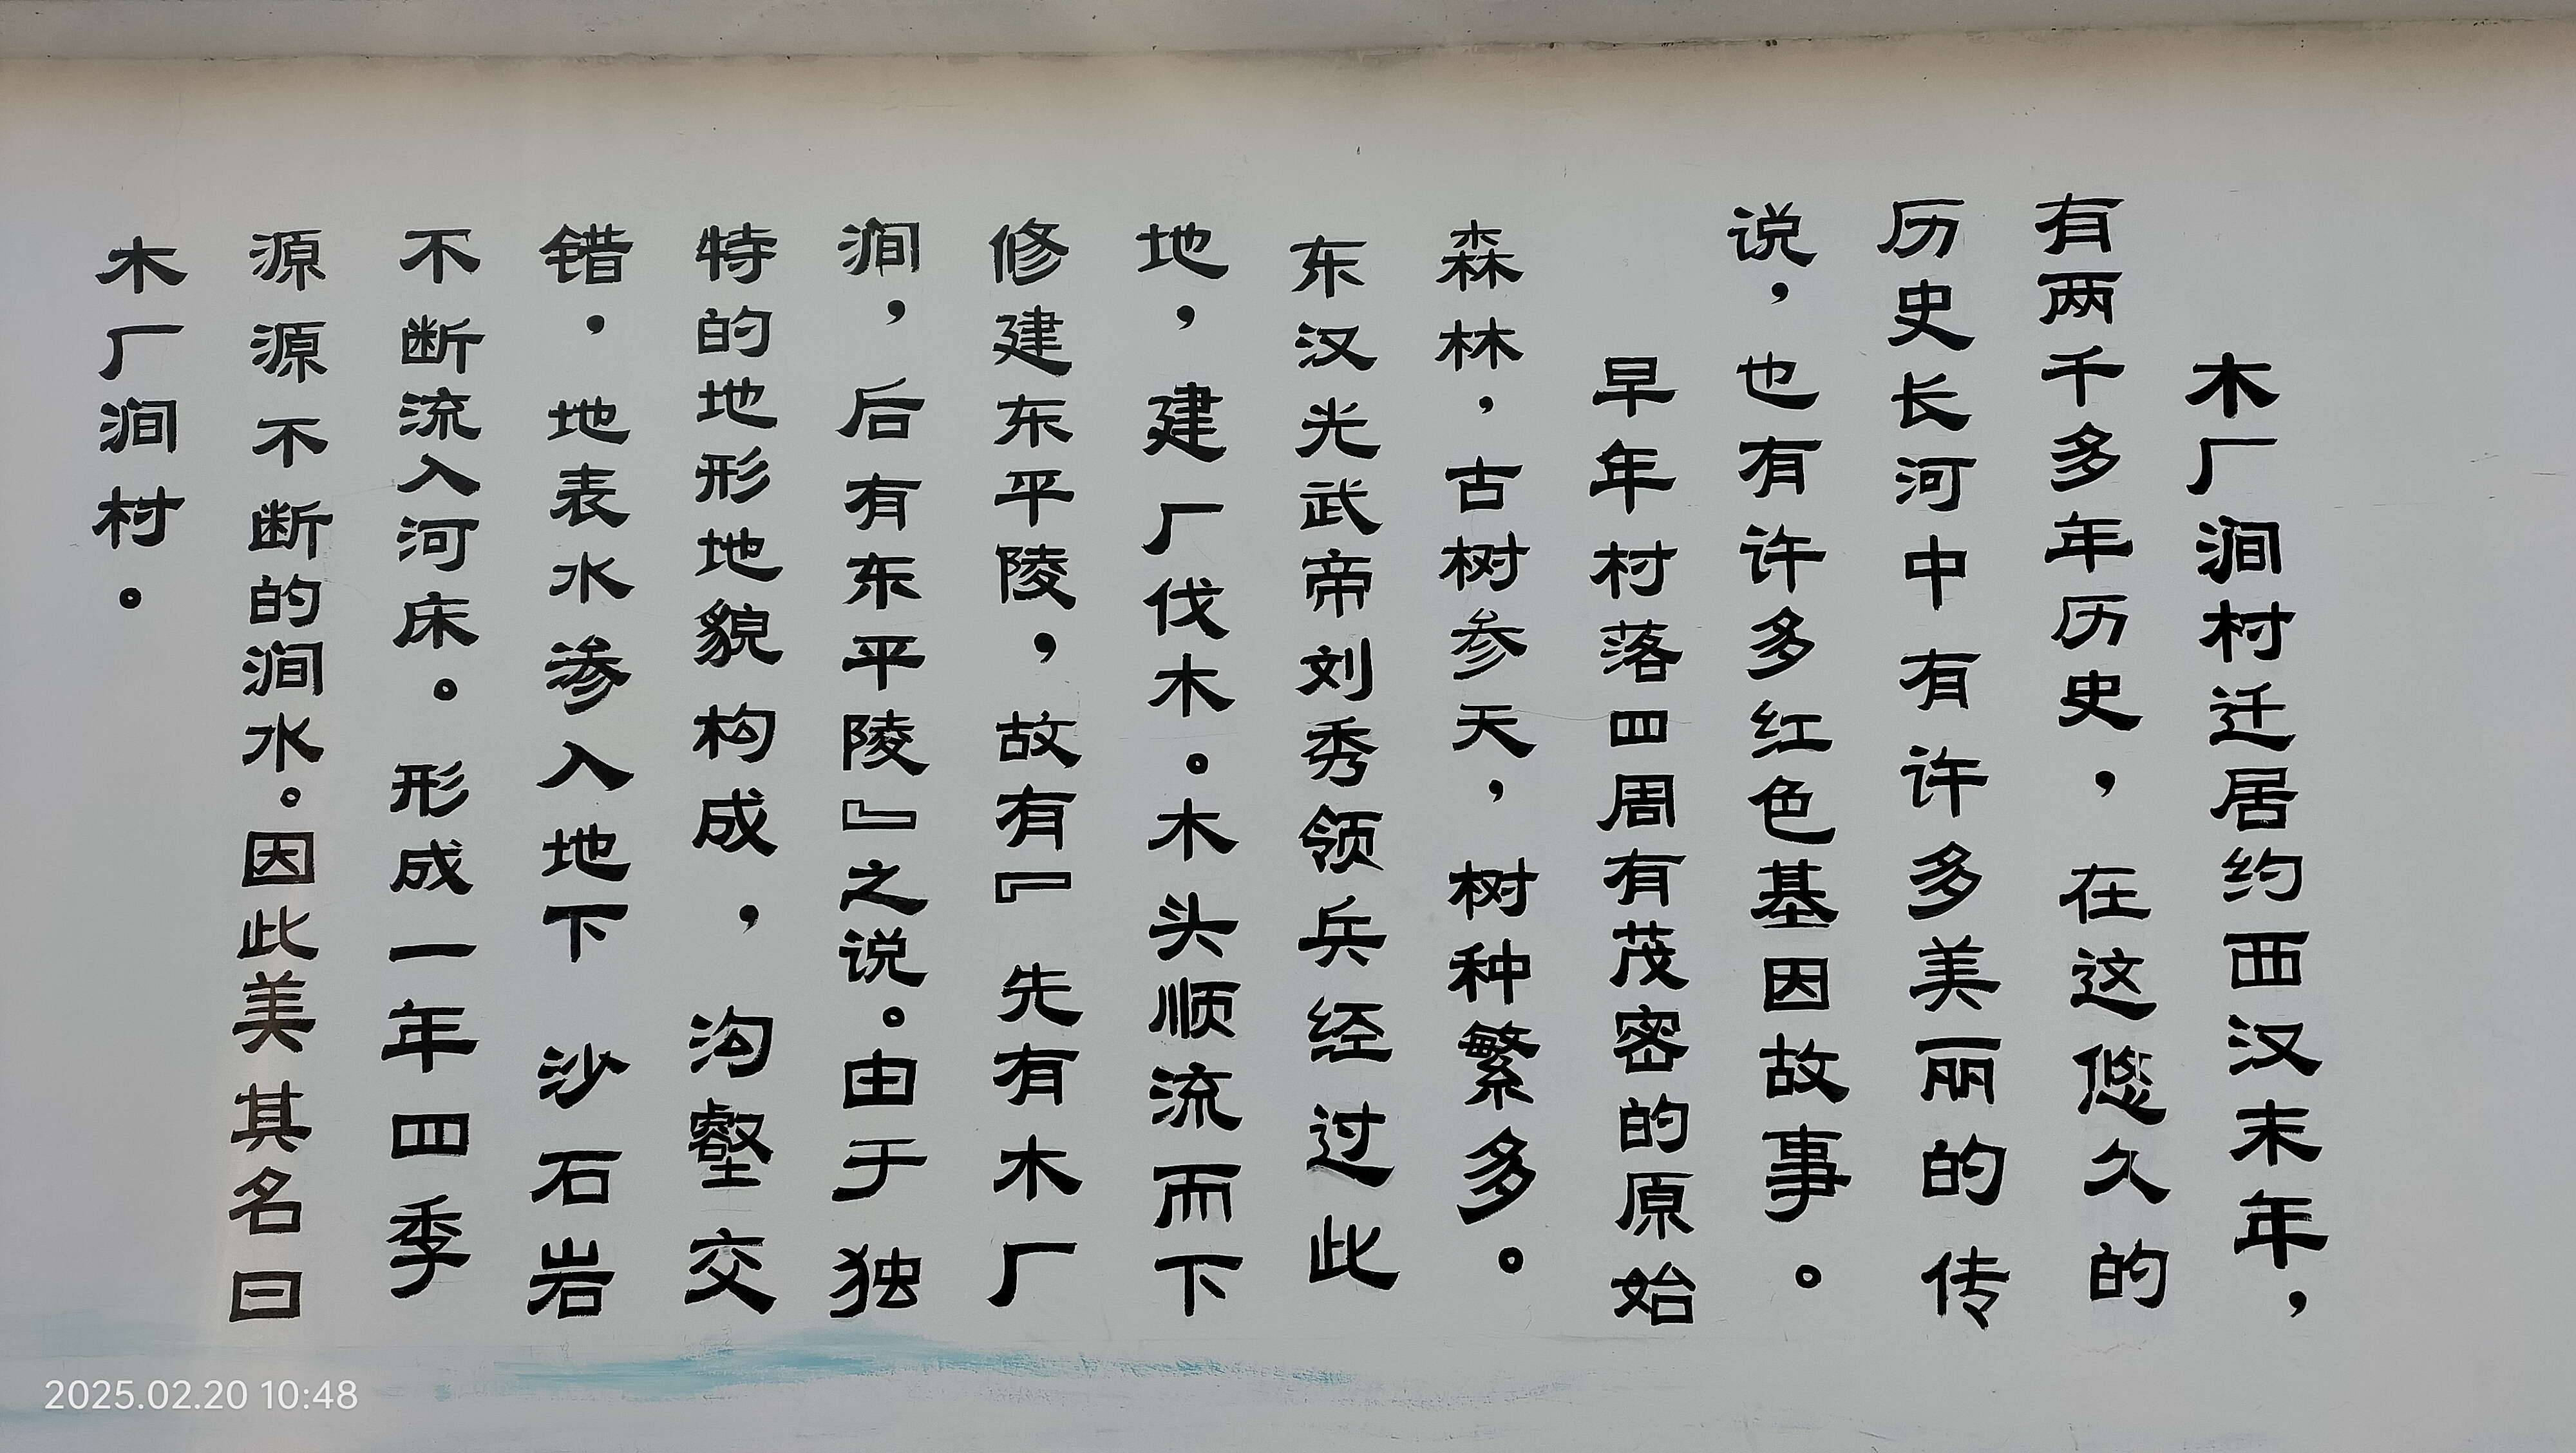 木厂涧村迁居约西汉末年，
有两千多年历史，在这悠久的
历史长河中有许多美丽的传
说，也有许多红色基因故事。
早年村落四周有茂密的原始
森林，古树参天，树种繁多。
东汉光武帝刘秀领兵经过此
地，建厂伐木。木头顺流而下
修建东平陵，故有『先有木厂
涧，后有东平陵』之说。由于独
特的地形地貌构成，沟壑交
错，地表水渗入地下沙石岩
不断流入河床。形成一年四季
源源不断的涧水。因此美其名曰
木厂涧村。
2025.02.20 10:48